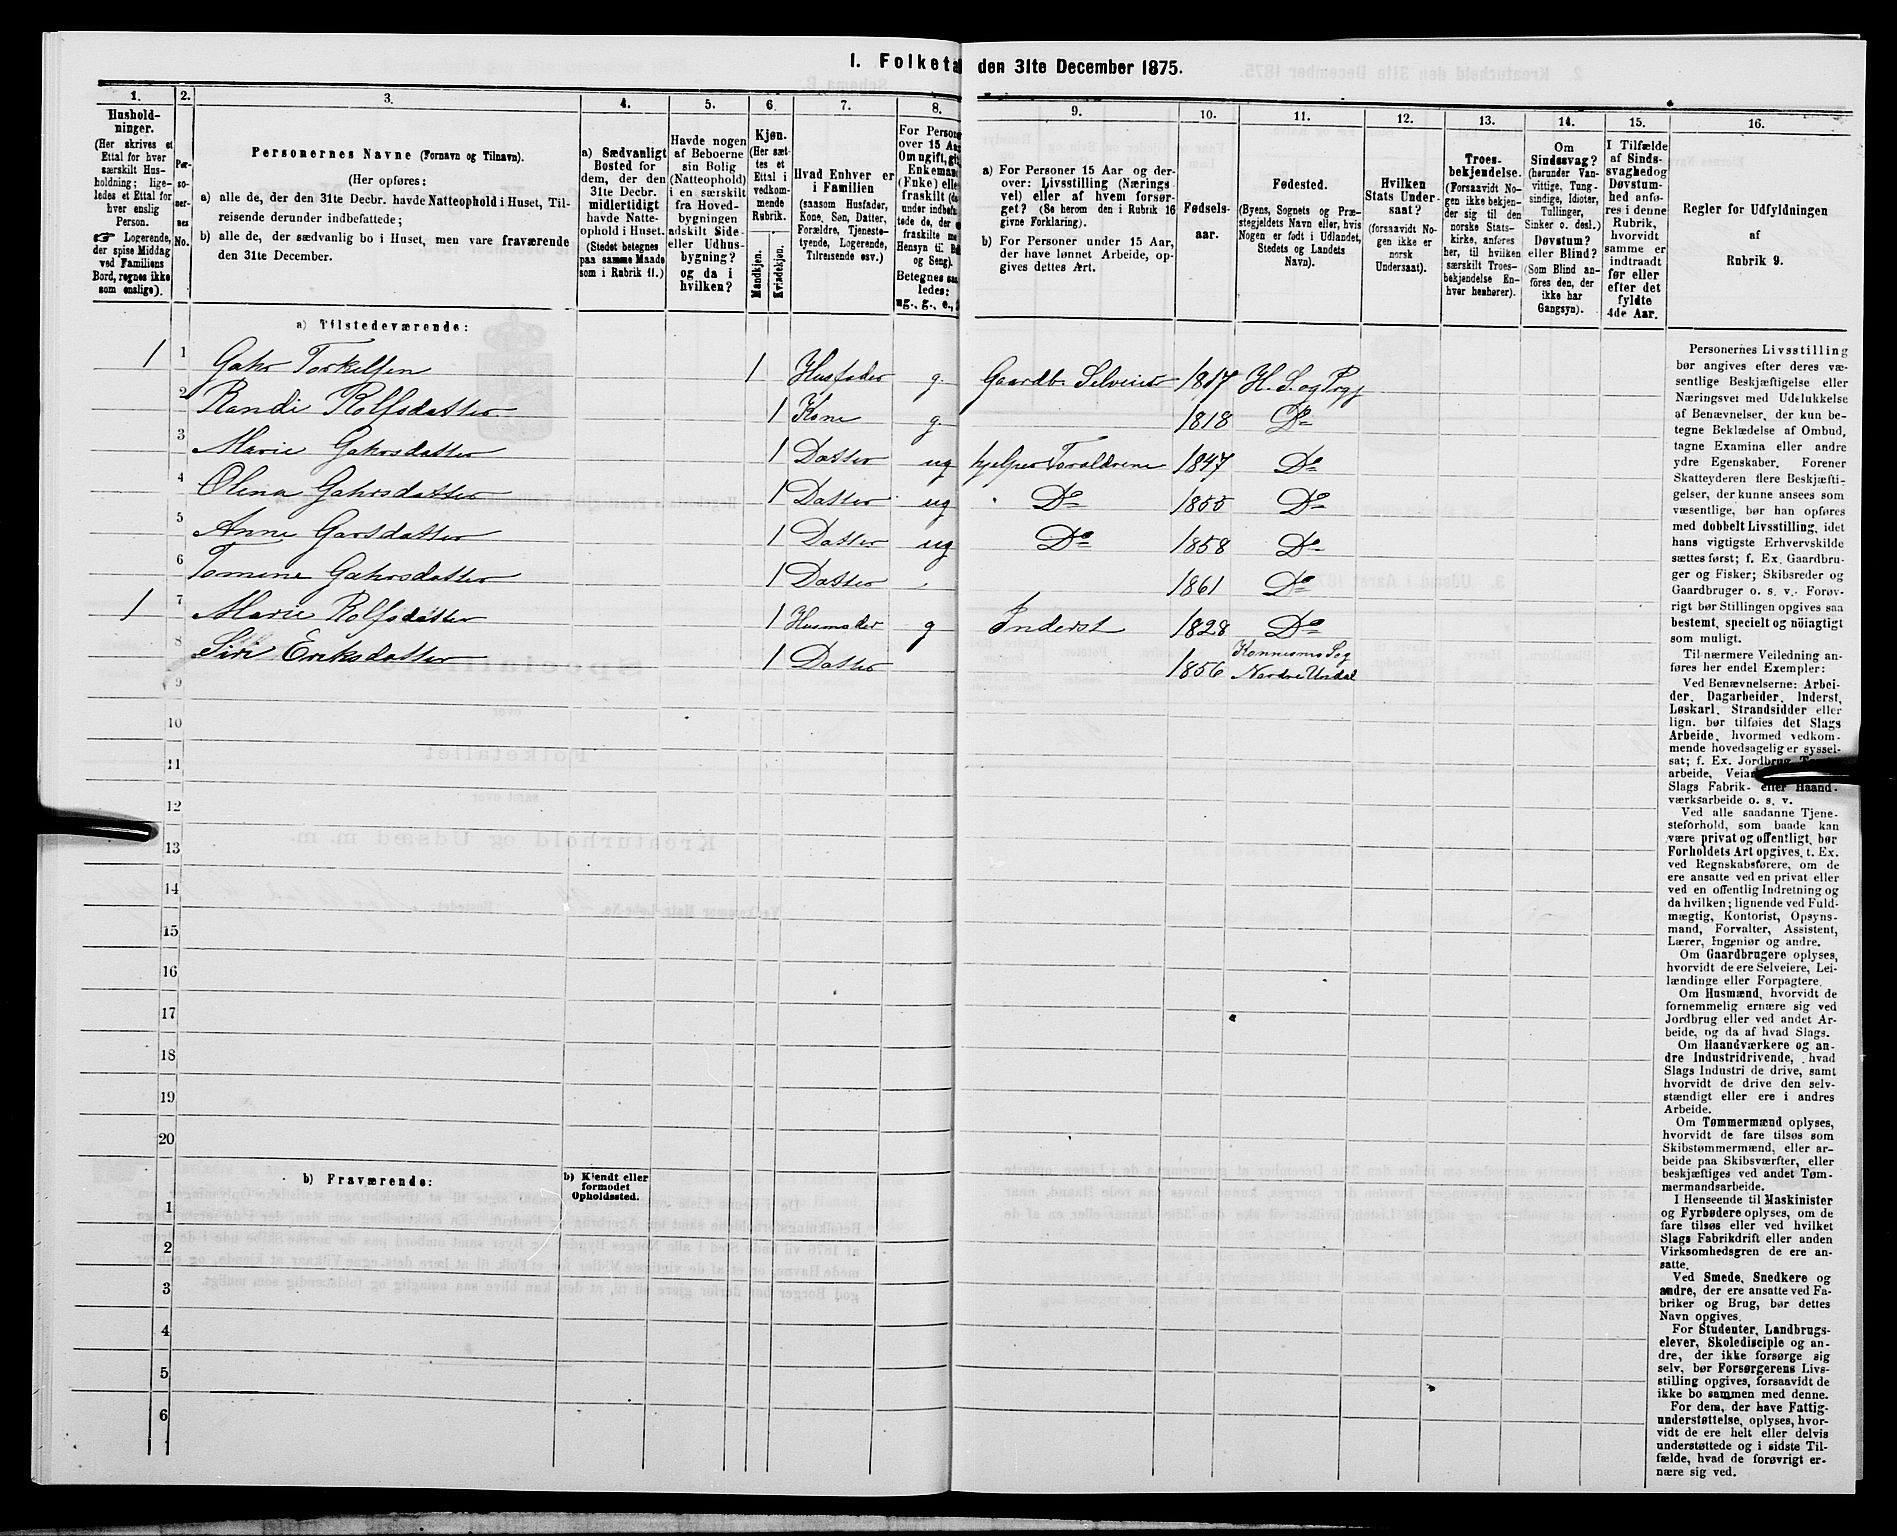 1. Folketal den 31te December 1875.
1. 2. 3. 4. 5. 6. 7. 8. 9. 10. 11. 12. 13. 14. 15. 16.
Hushold-
ninger.
(Her skrives et
Ettal for hver
særskilt Hus-
holdning; lige-
ledes et Ettal for
hver enslig
Person.
☞ Logerende,
der spise Middag
ved Familiens
Bord, regnes ikke
som enslige).
Per-
so-
ner-
nes
No.
Personernes Navne (Fornavn og Tilnavn).
(Her opføres:
a) alle de, der den 31te Decbr. havde Natteophold i Huset, Til-
reisende derunder indbefattede;
b) alle de, der sædvanlig bo i Huset, men vare fraværende
den 31te December.
a) Sædvanligt
Bosted for
dem, der den
31te Decbr.
midlertidigt
havde Natte-
ophold i Huset.
(Stedet betegnes
paa samme Maade
som i Rubrik 11.)
Havde nogen
af Beboerne
sin Bolig
(Natteophold)
i en særskilt
fra Hoved-
bygningen
adskilt Side-
eller Udhus-
bygning?
og da i
hvilken?
Kjøn.
(Her sæt-
tes et
Ettal i
vedkom-
mende
Rubrik.
Mandkjøn.
Kvindekjøn.
Hvad Enhver er
i Familien
(saasom Husfader,
Kone, Søn, Datter,
Forældre, Tjeneste-
tyende, Logerende,
Tilreisende osv.)
For Persone
over 15 Aar
Om ugift, gift
Enkemand
(Enke) elle
fraskilt (da
under indbefat-
tede de, der e
fraskilte me
Hensyn til B
og Seng).
Betegnes saa
ledes:
ug., g., e.,
a) For Personer 15 Aar og der-
over: Livsstilling (Nærings-
vei) eller af hvem forsør-
get? (Se herom den i Rubrik 16
givne Forklaring).
b) For Personer under 15 Aar,
der have lønnet Arbeide, op-
gives dettes Art.
Fødsels-
aar.
Fødested.
(Byens, Sognets og Præ-
stegjeldets Navn eller, hvis
Nogen er født i Udlandet,
Stedets og Landets
Navn).
Hvilken
Stats Under-
saat?
(forsaavidt No-
gen ikke er
norsk
Undersaat).
Troes-
bekjendelse.
(Forsaavidt No-
gen ikke bekjen-
der sig til den
norske Stats-
kirke, anføres
her, til hvilken
særskilt Troes-
bekjendelse En-
hver henhører).
Om
Sindssvag?
(herunder Van-
vittige, Tung-
sindige, Idioter,
Tullinger,
Sinker o. desl.)
Døvstum?
eller Blind?
(Som Blind an-
føres den, der
ikke har
Gangsyn).
I Tilfælde
af Sinds-
svaghed og
Døvstum-
hed anfø-
res i denne
Rubrik,
hvorvidt
samme er
indtraadt
før eller
efter det
fyldte
4de Aar.
Regler for Udfyldningen
af
Rubrik 9.
a) Tilstedeværende:
1 1 Gahr Torkelsen 1 Husfader g. Gaardb. Selveier 1817 H. S. og Prgj
2 Randi Rolfsdatter 1 Kone g. 1818 Do
3 Marie Gahrsdatter 1 Datter ug hjelper Foraldrene 1847 Do
4 Olena Gahrsdatter 1 Datter ug Do 1855 Do
5 Anne Garsdatter 1 Datter ug Do 1858 Do
6 Tomene Gahrsdatter 1 Datter 1861 Do
1 7 Marie Rolfsdatter 1 Husmoder g Inderst 1828 Do
8 Siri Eriksdatter 1 Datter 1856 Konnesmo Sog
Nordre Undal
9
10
11
12
13
14
15
16
17
18
19
20
b) Fraværende:
b) Kjendt eller
formodet
Opholdssted.
1
2
3
4
5
6
Personernes Livsstilling
bør angives efter deres væ-
sentlige Beskjæftigelse eller
Næringsvei med Udelukkelse
af Benævnelser, der kun be-
tegne Beklædelse af Ombud,
tagne Examina eller andre
ydre Egenskaber. Forener
Skatteyderen flere Beskjæfti-
gelser, der kunne ansees som
væsentlige, bør han opføres
med dobbelt Livsstilling, idet
hans vigtigste Erhvervskilde
sættes først; f. Ex. Gaardbru-
ger og Fisker; Skibsreder og
Gaardbruger o. s. v. Forøv-
rigt bør Stillingen opgives saa
bestemt, specielt og nöiagtigt
som muligt.
Til nærmere Veiledning an-
føres her endel Exempler:
Ved Benævnelserne: Arbei-
der, Dagarbeider, Inderst,
Løskarl, Strandsidder eller
lign. bør tilføies det Slags
Arbeide, hvormed vedkom-
mende hovedsagelig er syssel-
sat; f. Ex. Jordbrug,
arbeide,
Slags Fabrik- eller Haand-
værksarbeide o. s. v.
Ved alle saadanne Tjene-
steforhold, som baade kan
være privat og offentligt, bør
Forholdets Art opgives, t. Ex.
ved Regnskabsførere, om de
ere ansatte ved en privat eller
ved en offentlig Indretning og
da hvilken; lignende ved Fuld-
mægtig, Kontorist, Opsyns-
mand, Forvalter, Assistent,
Lærer, Ingeniør og andre.
Om Gaardbrugere oplyses,
hvorvidt de ere Selveiere, Lei-
lændinge eller Forpagtere.
Om Husmænd, hvorvidt de
fornemmelig ernære sig ved
Jordbrug eller ved andet Ar-
beide, og da af hvad Slags.
Om Haandværkere og an-
dre Industridrivende, hvad
Slags Industri de drive, samt
hvorvidt de drive den selv-
stændigt eller ere i andres
Arbeide.
Om Tømmermænd oplyses,
hvorvidt de fare tilsøs som
Skibstømmermænd, eller ar-
beide paa Skibsværfter, eller
beskjæftiges ved andet Tøm-
mermandsarbeide.
I Henseende til Maskinister
og Fyrbødere oplyses, om de
fare tilsøs eller ved hvilket
Slags Fabrikdrift eller anden
Virksomhedsgren de ere an-
satte.
Ved Smede, Snedkere og
andre, der ere ansatte ved Fa-
briker og Brug, bør dettes
Navn opgives.
For Studenter, Landbrugs-
elever, Skoledisciple og an-
dre, der ikke forsørge sig
selv, bør Forsørgerens Livs-
stilling opgives, forsaavidt de
ikke bo sammen med denne.
For dem, der have Fattig-
understøttelse, oplyses, hvor-
vidt de ere helt eller delvis
understøttede og i sidste Til-
fælde, hvad de forøvrigt er-
nære sig ved.